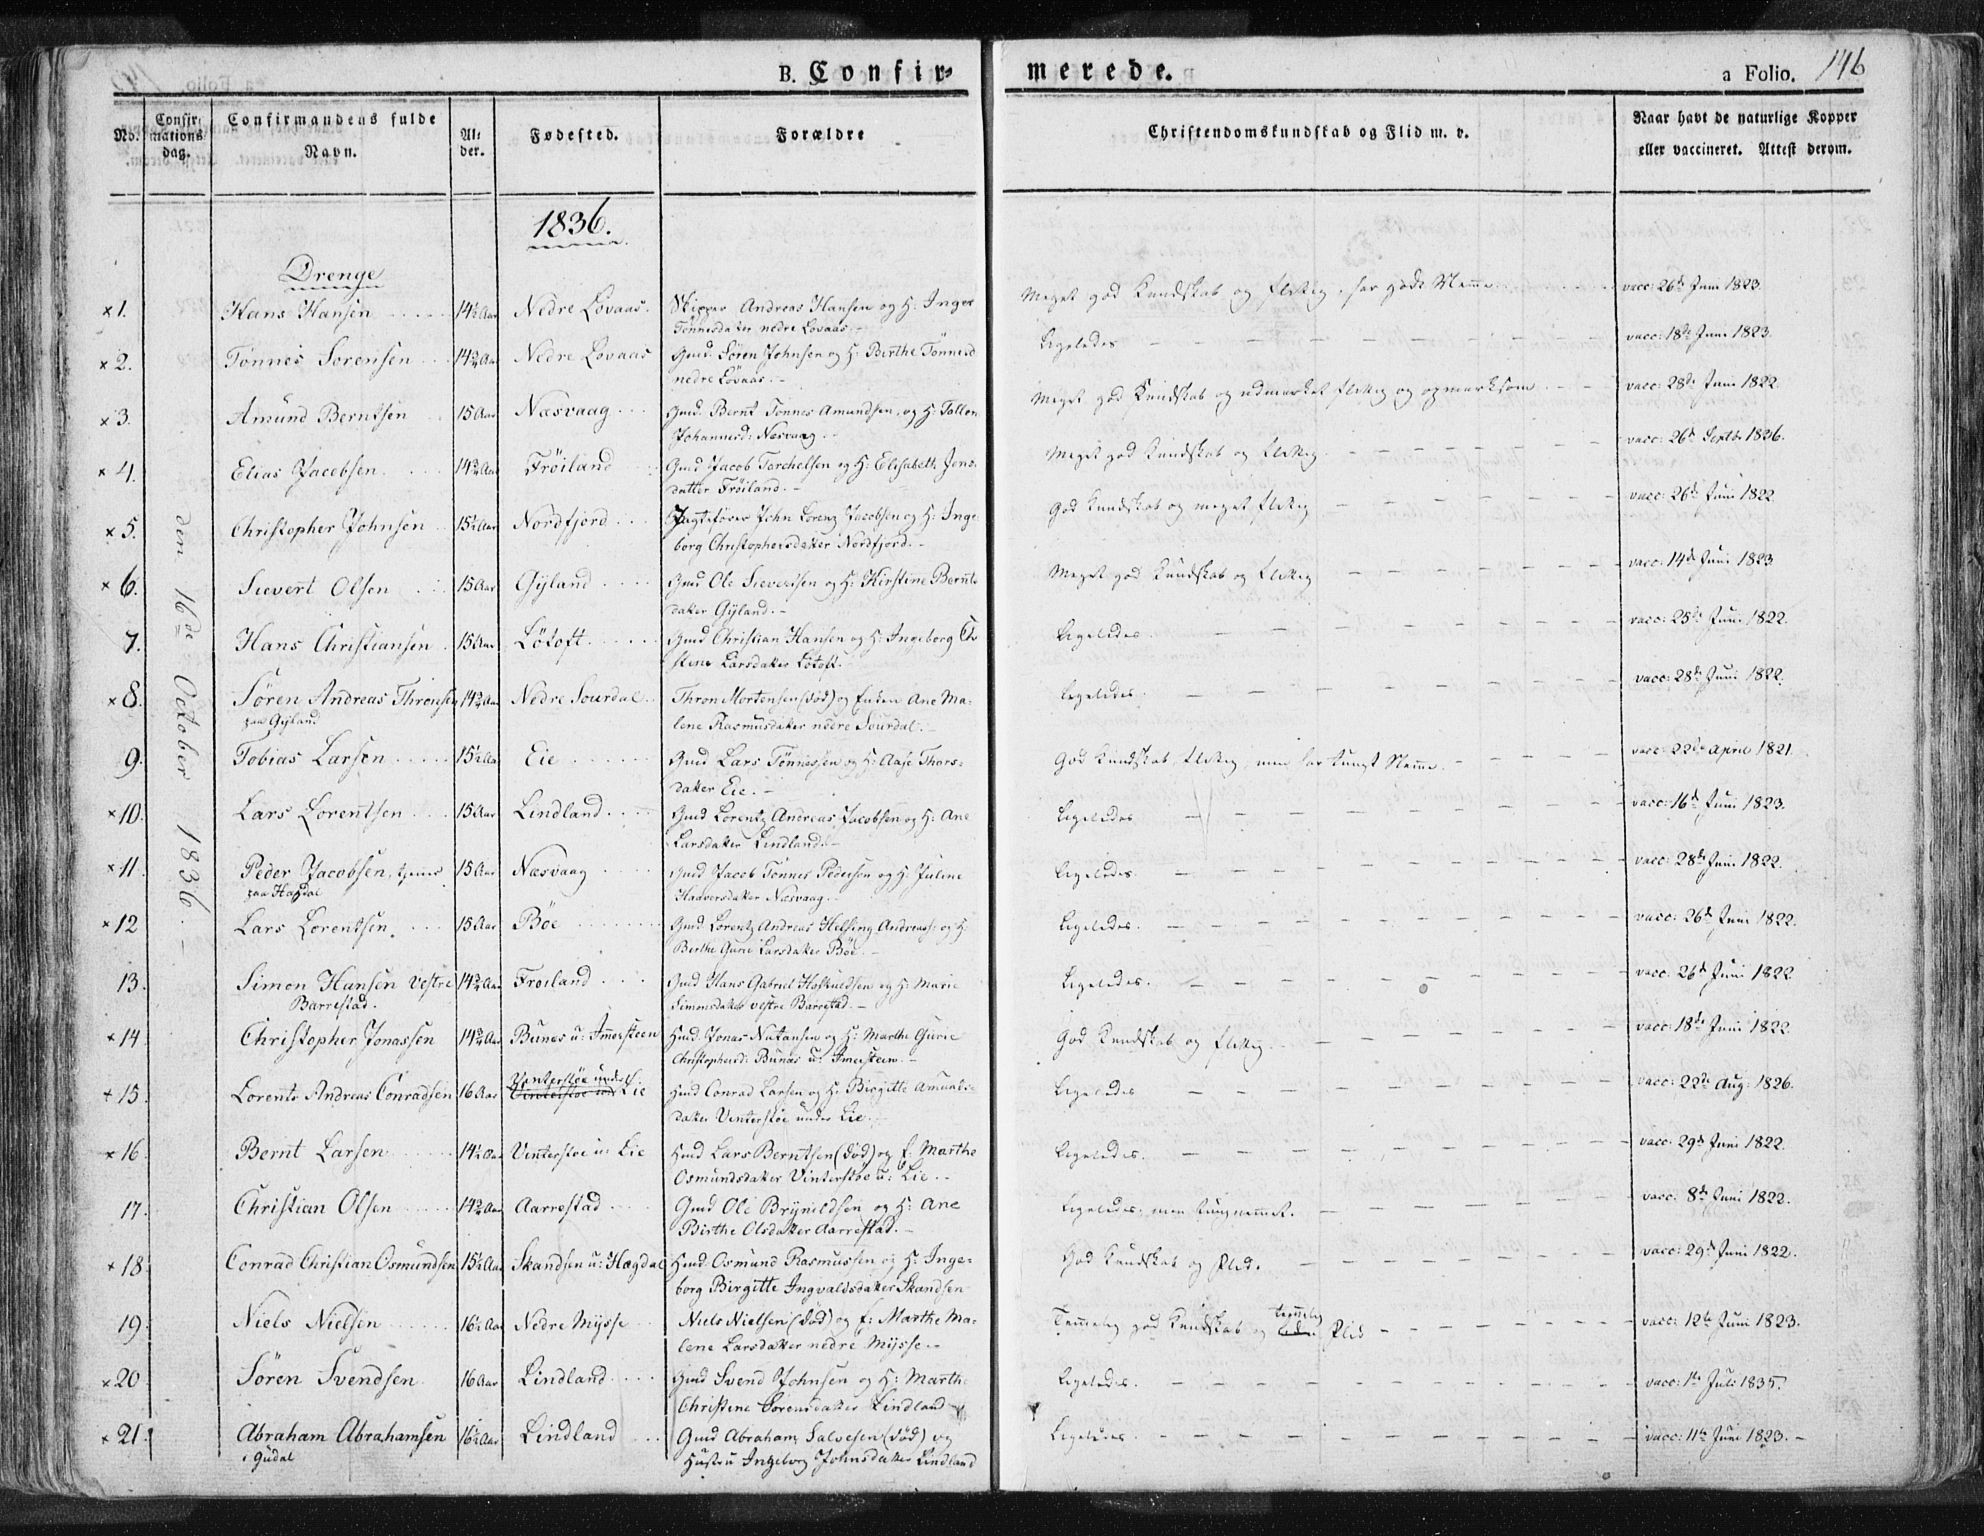 B. Confir-
merede.
a Folio. 146
No.
Confirmations dag.
Confirmandens fulde Navn.
Alder.
Fødested.
Forældre
Christendomskundskab og Flid m. v.
Naar havt de naturlige Kopper eller vaccineret. Attest derom.
1836.
Drenge
den 16de October 1836.
×1. Hans Hansen 14½ Aar Nedre Lovaas. Skipper Andreas Hansen og H: Inger Meget god Kundskab og flittig, har godt Nemme vacc: 26de Juni 1823.
Tönnesdatter nedre Lovaas.
×2. Tönnes Sorensen 14¾ Aar Nedre Lovaas Gmd. Sören Johnsen og H: Birthe Tönnesd Ligeledes vacc: 18de Juni 1823.
nedre Lövaas.
×3. Amund Berntsen 15 Aar Næsvaag Gmd. Bernt Tönnes Amundsen, og H: Tallen Meget god Kundskab og udmærket flittig og opmærksom vacc: 28de Juni 1822.
Johannesd: Næsvaag
×4. Elias Jacobsen 14¾ Aar Fröiland Gmd Jacob Torchelsen og H: Elisabeth Jons- Meget god Kundskab og flittig vacc: 26de Septbr 1836.
datter Fröiland.
×5. Christopher Johnsen 15½ Aar Nordfjord Jagtefører John Lorenz Jacobsen og H: Inge- God Kundskab og meget flittig vacc: 26de Juni 1822
borg Christophersdatter Nordfjord.
×6. Sievert Olsen 15 Aar Gyland Gmd Ole Sievertsen og H: Kirstine Bernts Meget god Kundskab og flittig vacc: 14de Juni 1823
datter Gyland.
7. Hans Christiansen 15 Aar Lötoft Gmd Christian Hansen og H: Ingeborg Chr Ligeledes. vacc: 25de Juni 1822.
stine Larsdatter Lötoft.
×8. Sören Andreas Thronsen 14¾ Aar Nedre Sourdal Thron Mortensen (död) og Enken Ane Ma- Ligeledes. vacc: 28de Juni 1822.
paa Gyland lene Rasmusdatter nedre Sourdal.
9. Tobias Larsen 15½ Aar Eie Gmd Lars Tönnessen og H: Aase Thors- God Kundskab, flittig, men har tungt Nemme. vacc: 22de April 1821.
datter Eie.
×10. Lars Lorentsen 15 Aar Lindland Gmd Lorentz Andreas Jacobsen og H: Ane Ligeledes vacc: 16de Juni 1823.
Larsdatter Lindland.
×11. Peder Jacobsen, tjener 15 Aar Næsvaag Gmd Jacob Tönnes Pedersen og H: Juline Ligeledes. vacc: 28de Juni 1822.
paa Hægdal Haaversdatter Næsvaag.
×12 Lars Lorentsen 15 Aar Böe Gmd Lorentz Andreas Helsing Andreass: og H: Ligeledes. vacc: 26de Juni 1822.
Berthe Gurie Larsdatter Böe.
13. Simon Hansen vestre 14¾ Aar Froiland Gmd Hans Gabriel Hoskuldsen og H: Marie Ligeledes. vacc: 26de Juni 1822
Barrestad. Simonsdatter vestre Barrestad.
×14 Christopher Jonassen 14¾ Aar Bunes u: Imersteen Hmd. Jonas Natansen og H: Marthe Gurie God Kundskab og flittig. vacc: 18de Juni 1822.
Christophersd: Bunæs u: Imersteen.
×15. Lorents Andreas Conradsen 16 Aar Vinterstöe under Lie Hmd Conrad Larsen og H: Birgitte Amunds- Ligeledes vacc: 22de Aug: 1826.
datter Vinterstöe under Lie.
×16. Bernt Larsen 14½ Aar Vinterstoe u: Lie Hmd Lars Berntsen (död) og E: Marthe Ligeledes. vacc: 29de Juni 1822.
Osmundsdatter Vinterstöe u: Lie.
17. Christian Olsen 14¾ Aar Aarrestad Gmd Ole Brynildsen og H: Ane Ligeledes, men tungnemmet. vacc: 8de Juni 1822.
Birthe Olsdatter Aarrestad.
×18. Conrad Christian Osmundsen 15½ Aar Skandsen u: Hægdal Hmd. Osmund Rasmussen og H: Inge- God Kundskab og Flid. vacc: 29de Juni 1822.
borg Birgitte Ingvaldsdatter Skandsen
19. Niels Nielsen 16½ Aar Nedre Mysse Niels Nielsen (död) og E: Marthe Ma- Temmelig god Kundskab og temmelig Flid vacc: 12te Juni 1823.
lene Larsdatter nedre Mysse.
×20 Sören Svendsen 16 Aar Lindland Gmd Svend Johnsen og H: Marthe Ligeledes. vacc: 1te Juli 1835.
Christine Sörensdatter Lindland
×21. Abraham Abrahamsen 16½ Aar Lindland Gmd Abraham Salvesen (död) og Ligeledes. vacc: 11te Juni 1823.
i Gudal Hustru Ingeborg Johnsdatter Lindland